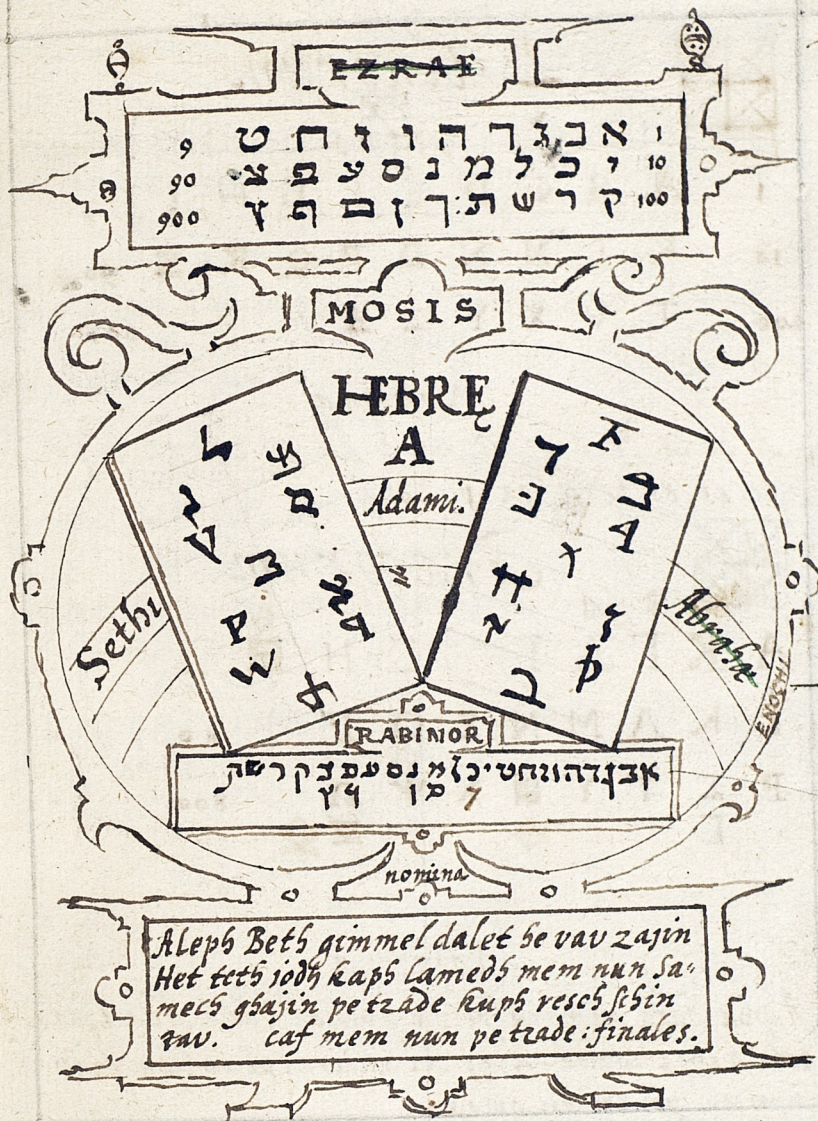 EZRAE
9 ט ח ז ו ה ד ג ב א 1
90 צ פ ע ס נ מ ל כ י 10
900 ץ ף ן ם ך ת ש ר ק 100
MOSIS
HEBRĘ
A
Adami.
Sethi
Abrahæ
ENOCHI
RABINOR
אבגדהוזחטיכלמנסעפצקרשת
ם ן ף ץ
nomina
Aleph Beth gimmel dalet he vav zajin
Het teth jodh kaph lamedh mem nun sa-
mech ghajin pe tzade kuph resch schin
tav. caf mem nun pe tzade: finales.